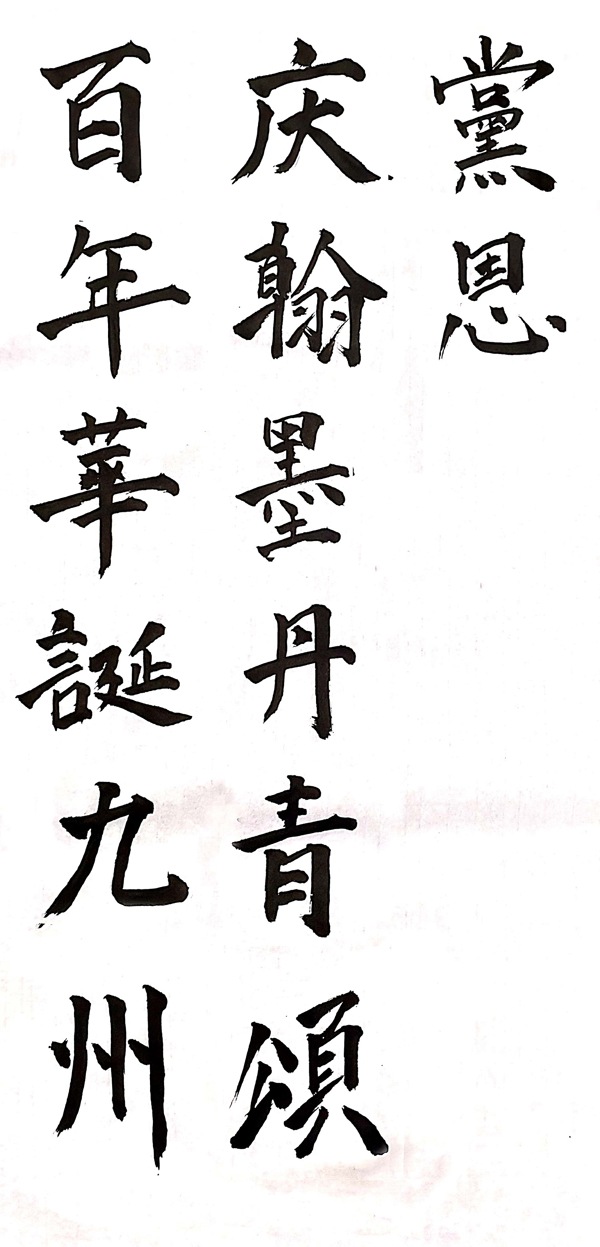 百年華誕九州
庆翰墨丹青頌
黨恩